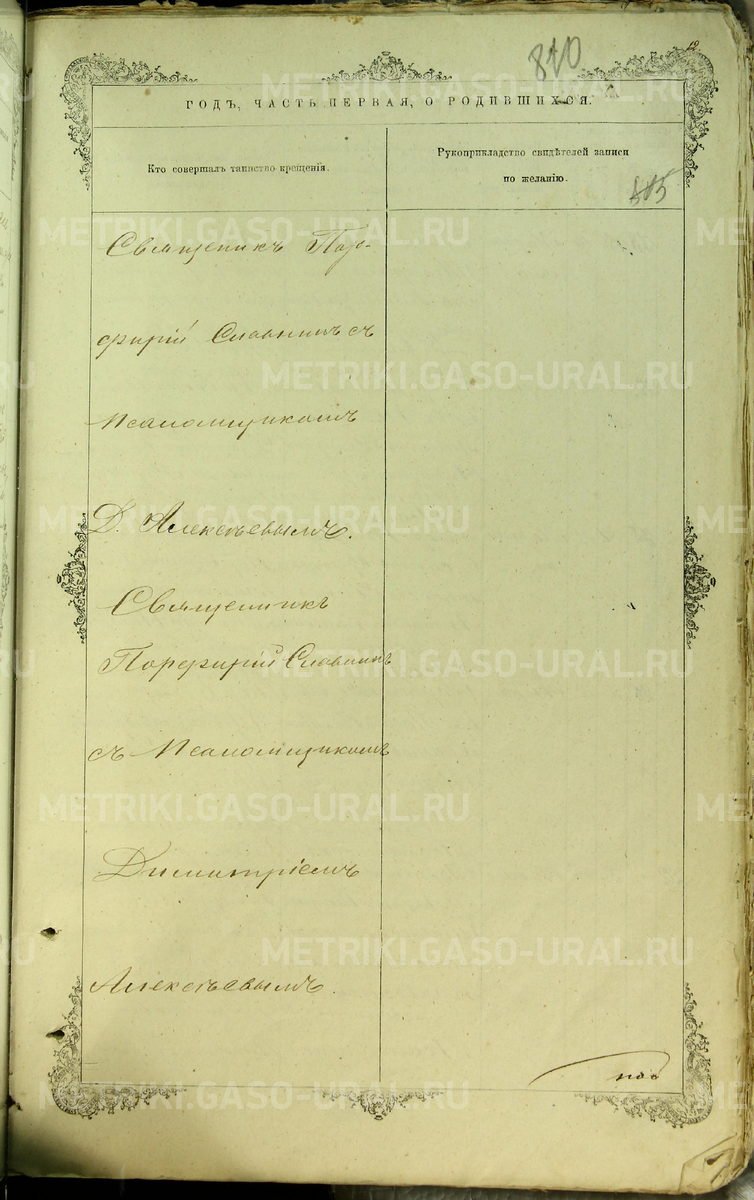 12
810
ГОДЪ, ЧАСТЬ ПЕРВАЯ, О РОДИВШИХСЯ.
Кто совершалъ таинство крещенія.
Рукоприкладство свидѣтелей записи
по желанію.
Священикъ Пор-
фирій Славнинъ съ
Псаломщикомъ
Д. Алексѣевымъ.
Священикъ
Порфирій Славнинъ
съ Псаломщикомъ
Димитріемъ
Алексѣевымъ.
METRIKI.GASO-URAL.RU